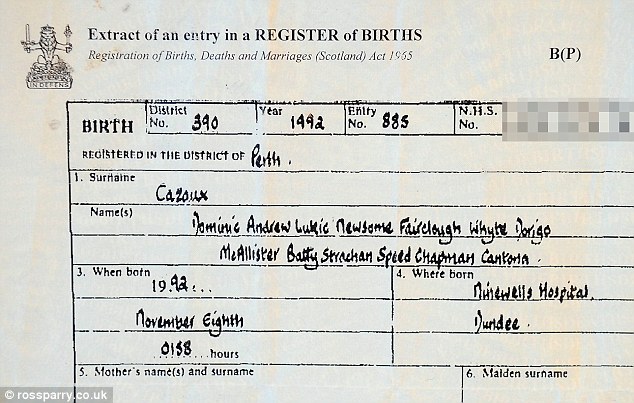 Extract of an entry in a REGISTER of BIRTHS
Registration of Births, Deaths and Marriages (Scotland) Act 1965
B(P)
IN DEFENS
BIRTH
District No. 390
Year 1992
Entry No. 885
N.H.S. No.
REGISTERED IN THE DISTRICT OF Perth.
1. Surname
Cazoux
Name(s)
Dominic Andrew Lukic Newsome Fairclough Whyte Dorigo
McAllister Batty Strachan Speed Chapman Cantona.
3. When born
1992...
November Eighth
0138 hours
4. Where born
Ninewells Hospital,
Dundee.
5. Mother's name(s) and surname
6. Maiden surname
© rossparry.co.uk